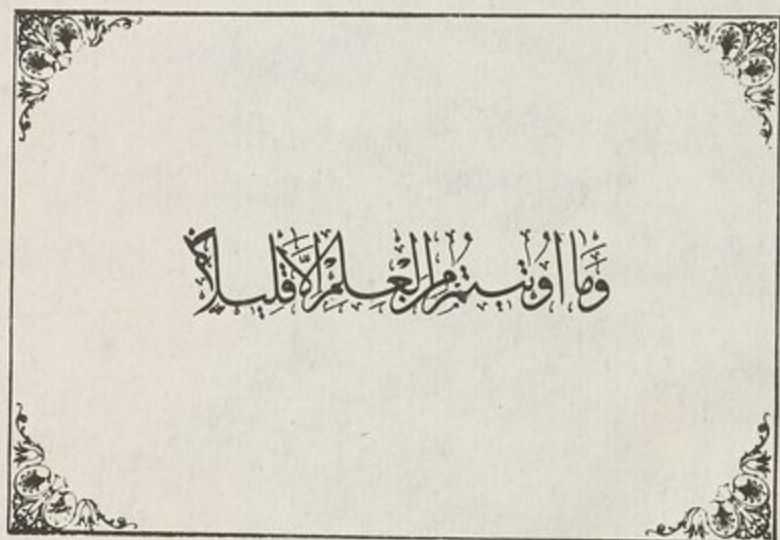 وَمَا اُوتيتُمْ مِنَ الْعِلْمِ اِلَّا قَلِيلاً